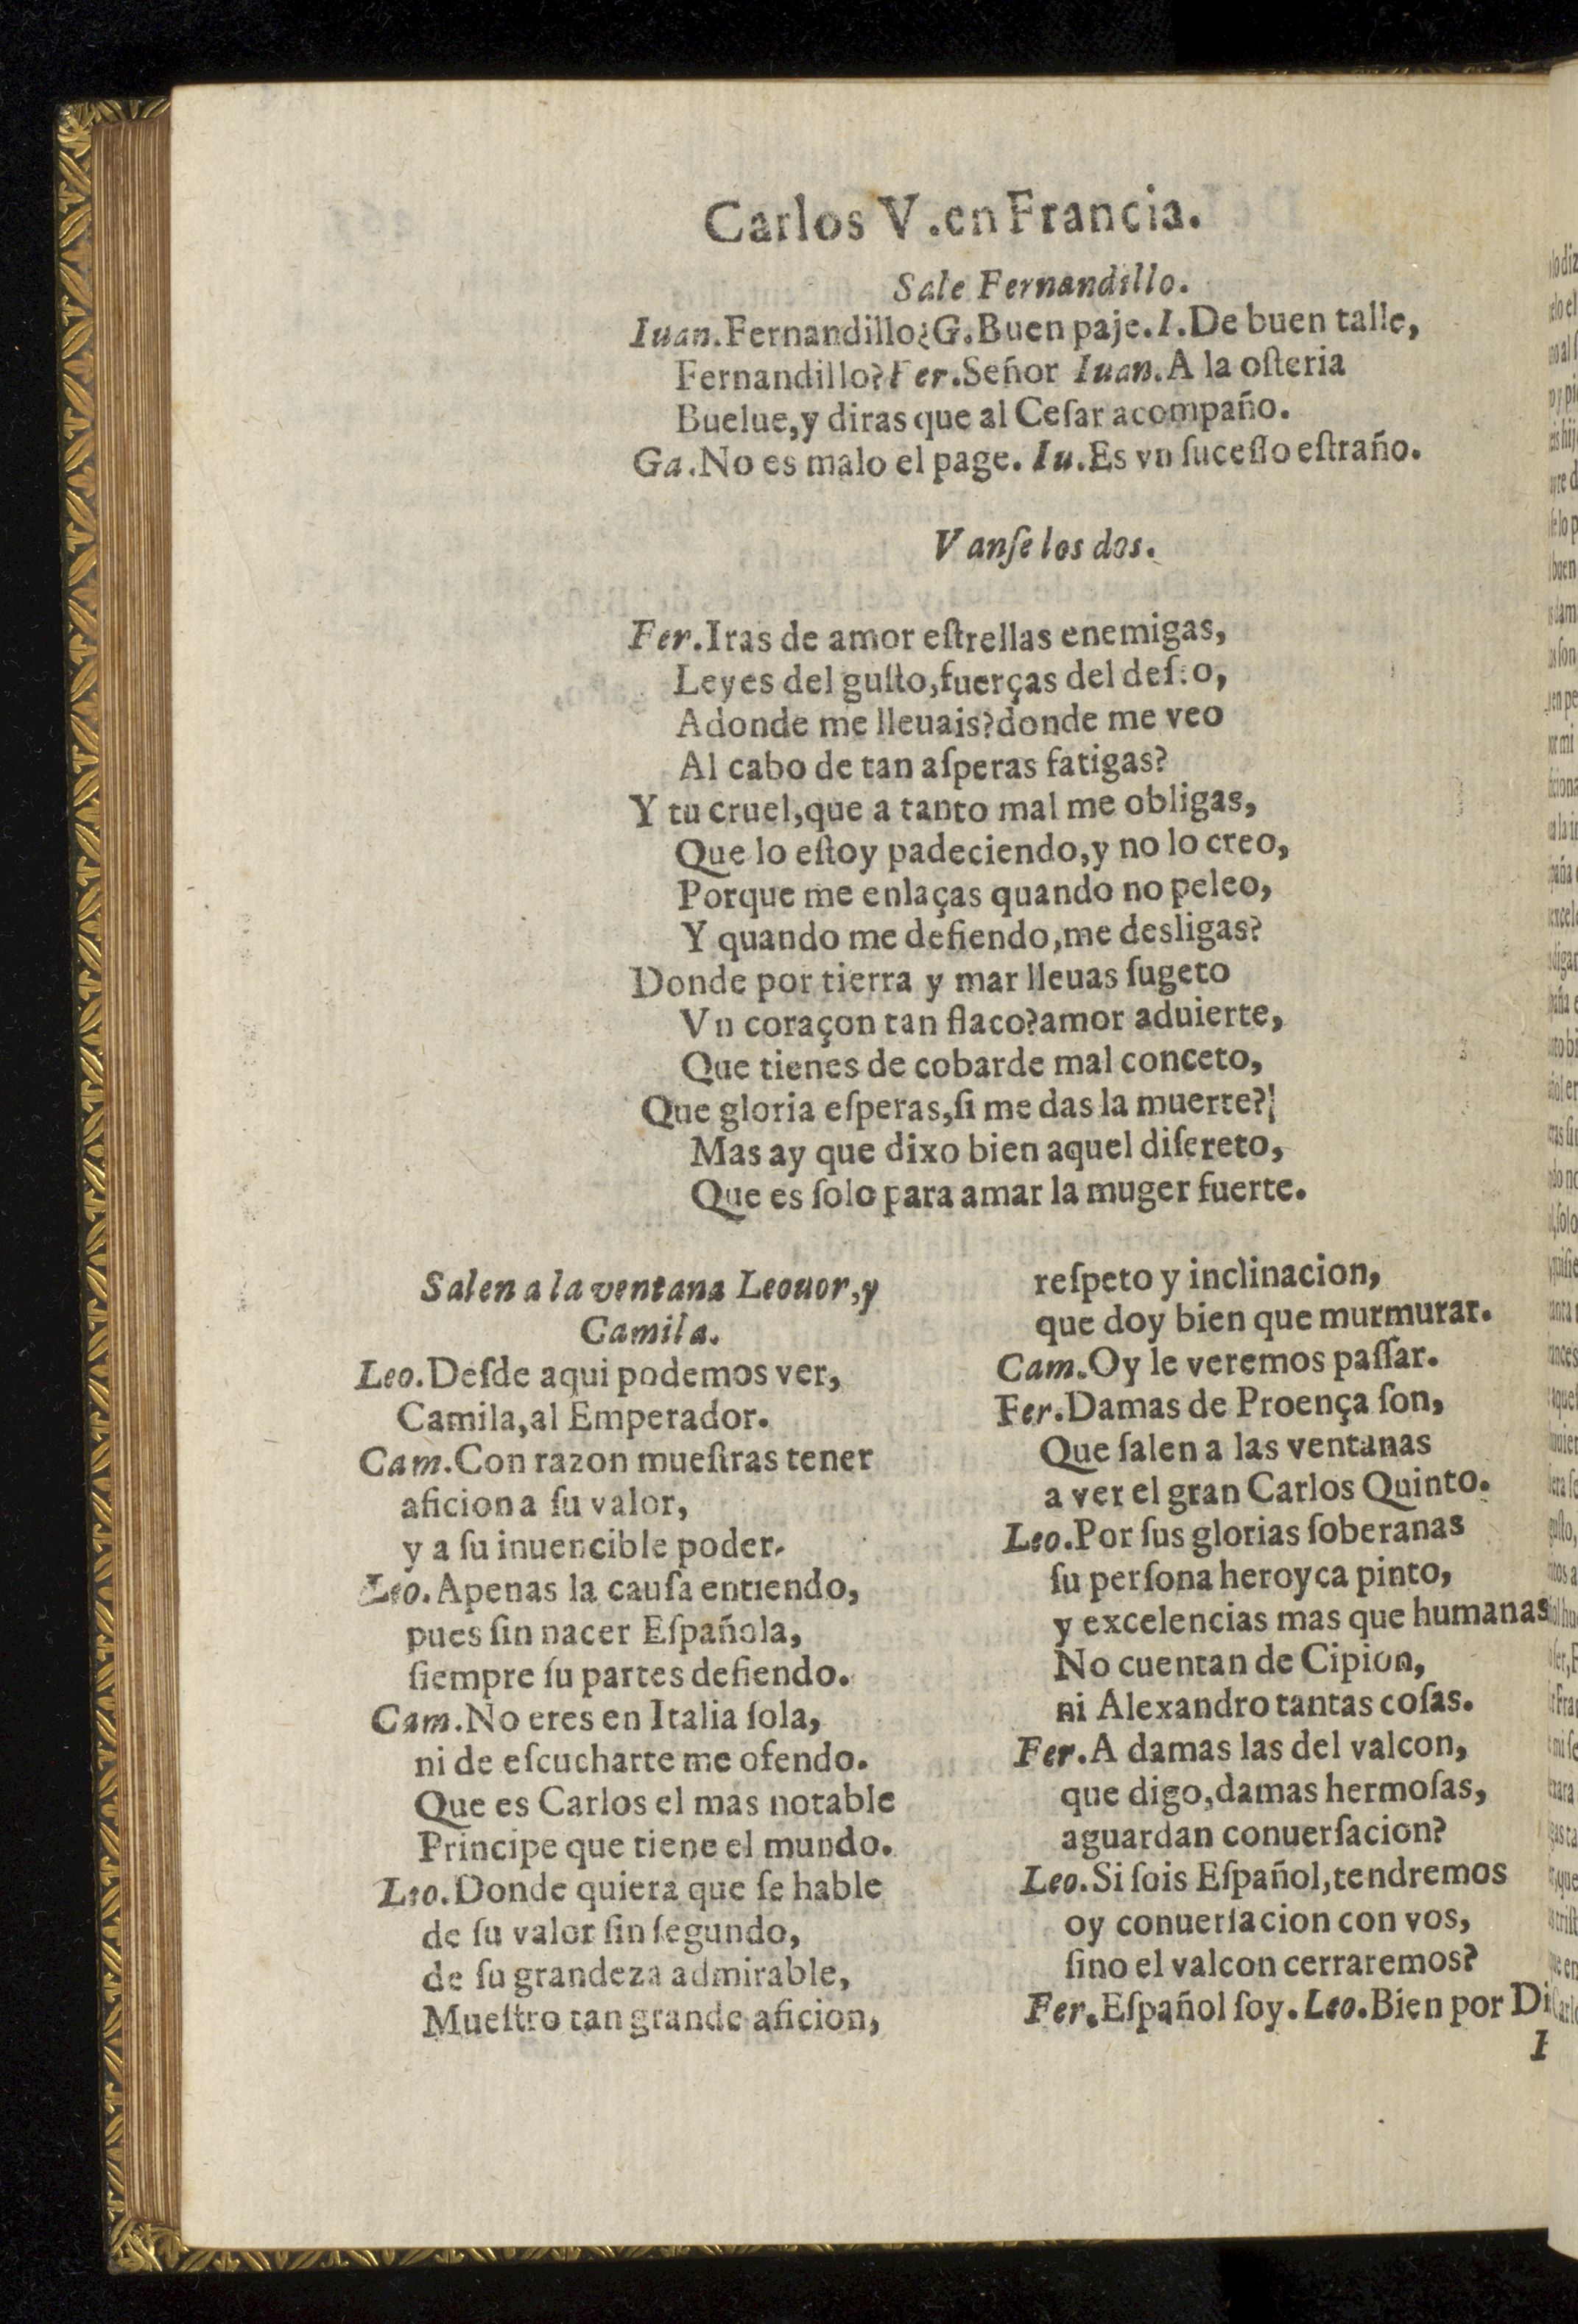 Carlos V.en Francia.
Sale Fernandillo.
Iuan.Fernandillo¿G.Buen paje.I.De buen talle,
Fernandillo?Fer.Señor Iuan.A la oſteria
Buelue,y diras que al Ceſar acompaño.
Ga.No es malo el page. Iu.Es vn ſuceſſo eſtraño.
Vanſe los dos.
Fer.Iras de amor eſtrellas enemigas,
Leyes del guſto,fuerças del deſeo,
Adonde me lleuais?donde me veo
Al cabo de tan aſperas fatigas?
Y tu cruel,que a tanto mal me obligas,
Que lo eſtoy padeciendo,y no lo creo,
Porque me enlaças quando no peleo,
Y quando me defiendo,me desligas?
Donde por tierra y mar lleuas ſugeto
Vn coraçon tan flaco?amor aduierte,
Que tienes de cobarde mal conceto,
Que gloria eſperas,ſi me das la muerte?
Mas ay que dixo bien aquel diſcreto,
Que es ſolo para amar la muger fuerte.
Salen a la ventana Leouor,y
Camila.
Leo.Deſde aqui podemos ver,
Camila,al Emperador.
Cam.Con razon mueſtras tener
aficion a ſu valor,
y a ſu inuencible poder.
Leo.Apenas la cauſa entiendo,
pues ſin nacer Eſpañola,
ſiempre ſu partes defiendo.
Cam.No eres en Italia ſola,
ni de eſcucharte me ofendo.
Que es Carlos el mas notable
Principe que tiene el mundo.
Leo.Donde quiera que ſe hable
de ſu valor ſin ſegundo,
de ſu grandeza admirable,
Mueſtro tan grande aficion,
reſpeto y inclinacion,
que doy bien que murmurar.
Cam.Oy le veremos paſſar.
Fer.Damas de Proença ſon,
Que ſalen a las ventanas
a ver el gran Carlos Quinto.
Leo.Por ſus glorias ſoberanas
ſu perſona heroyca pinto,
y excelencias mas que humanas
No cuentan de Cipion,
ni Alexandro tantas coſas.
Fer.A damas las del valcon,
que digo,damas hermoſas,
aguardan conuerſacion?
Leo.Si ſois Eſpañol,tendremos
oy conuerſacion con vos,
ſino el valcon cerraremos?
Fer.Eſpañol ſoy.Leo.Bien por Di